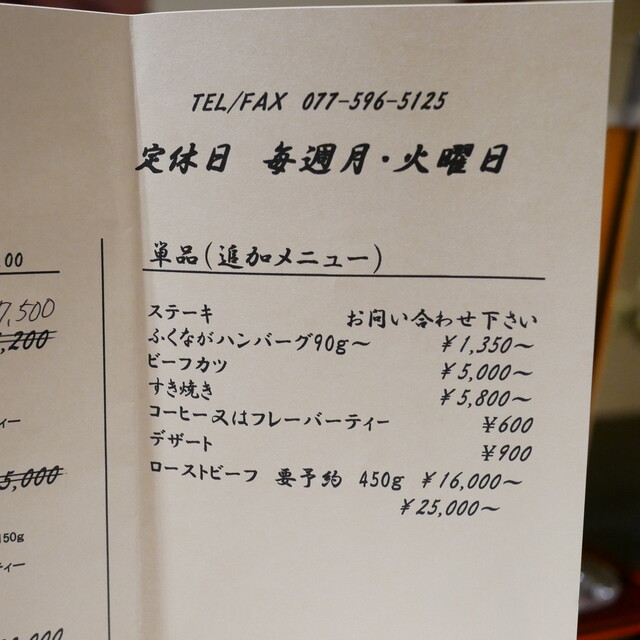 TEL/FAX 077-596-5125
定休日 毎週月・火曜日
単品(追加メニュー)
ステーキ お問い合わせ下さい
ふくながハンバーグ90g〜 ¥1,350〜
ビーフカツ ¥5,000〜
すき焼き ¥5,800〜
コーヒー又はフレーバーティー ¥600
デザート ¥900
ローストビーフ 要予約 450g ¥16,000〜
¥25,000〜
00
7,500
,200
ィー
5,000
150g
ティー